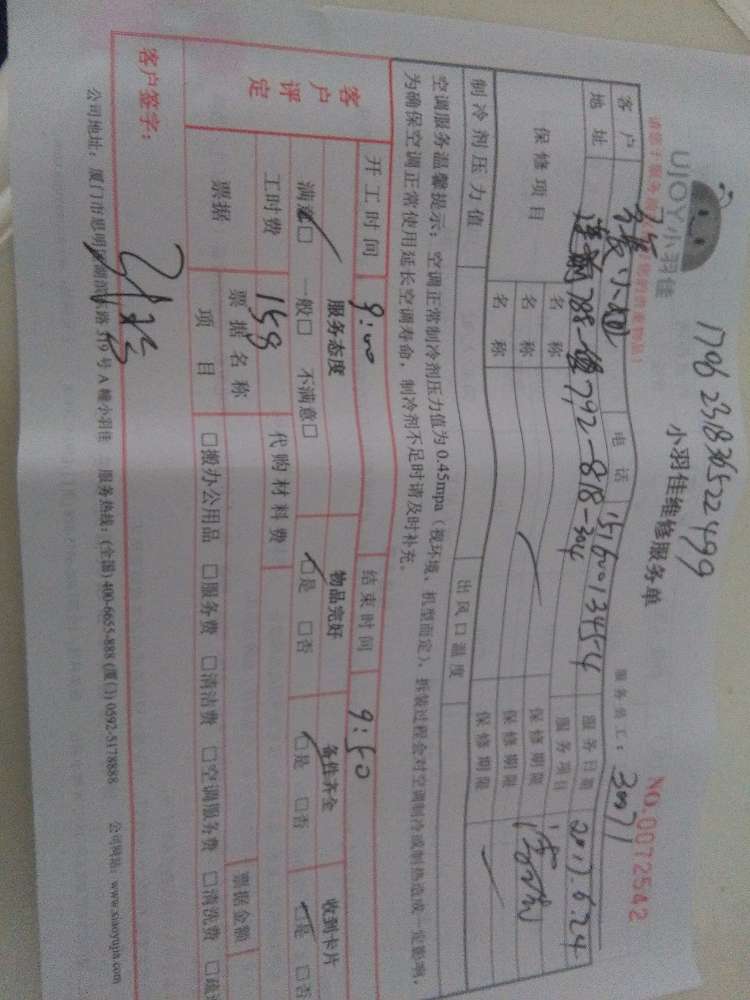 1796 2318 3652 2499
UJOY小羽佳
小羽佳维修服务单
NO.0072542
服务员工：30071
客户 小姐 电话 15160013454 服务日期 2017.6.24
地址 莲前 792-818-304 服务项目
保修项目 名称 保修期限
名称 保修期限
名称 保修期限
制冷剂压力值 出风口温度
空调服务温馨提示：空调正常制冷剂压力值为0.45mpa（视环境、机型而定），拆装过程会对空调制冷或制热造成一定影响，
为确保空调正常使用延长空调寿命，制冷剂不足时请及时补充。
开工时间 9:00 结束时间 9:50
客户评定 服务态度 物品完好 备件齐全 收到卡片
满意□ 一般□ 不满意□ □是 □否 □是 □否 □是 □否
工时费 158 代购材料费
票据 票据名称 票据金额
项目 □搬办公用品 □服务费 □清洁费 □空调服务费 □清洗费
客户签字：
公司地址：厦门市思明区湖滨 路319号A幢小羽佳 服务热线：(全国) 400-6655-888 (厦门) 0592-5178888 公司网站：www.xiaoyujia.com